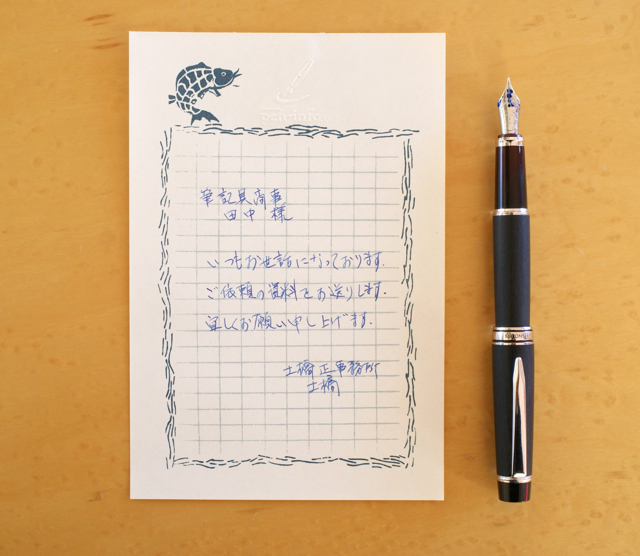 筆記具商事
田中 様
いつもお世話になっております。
ご依頼の資料をお送りします。
宜しくお願い申し上げます。
土橋正事務所
土橋